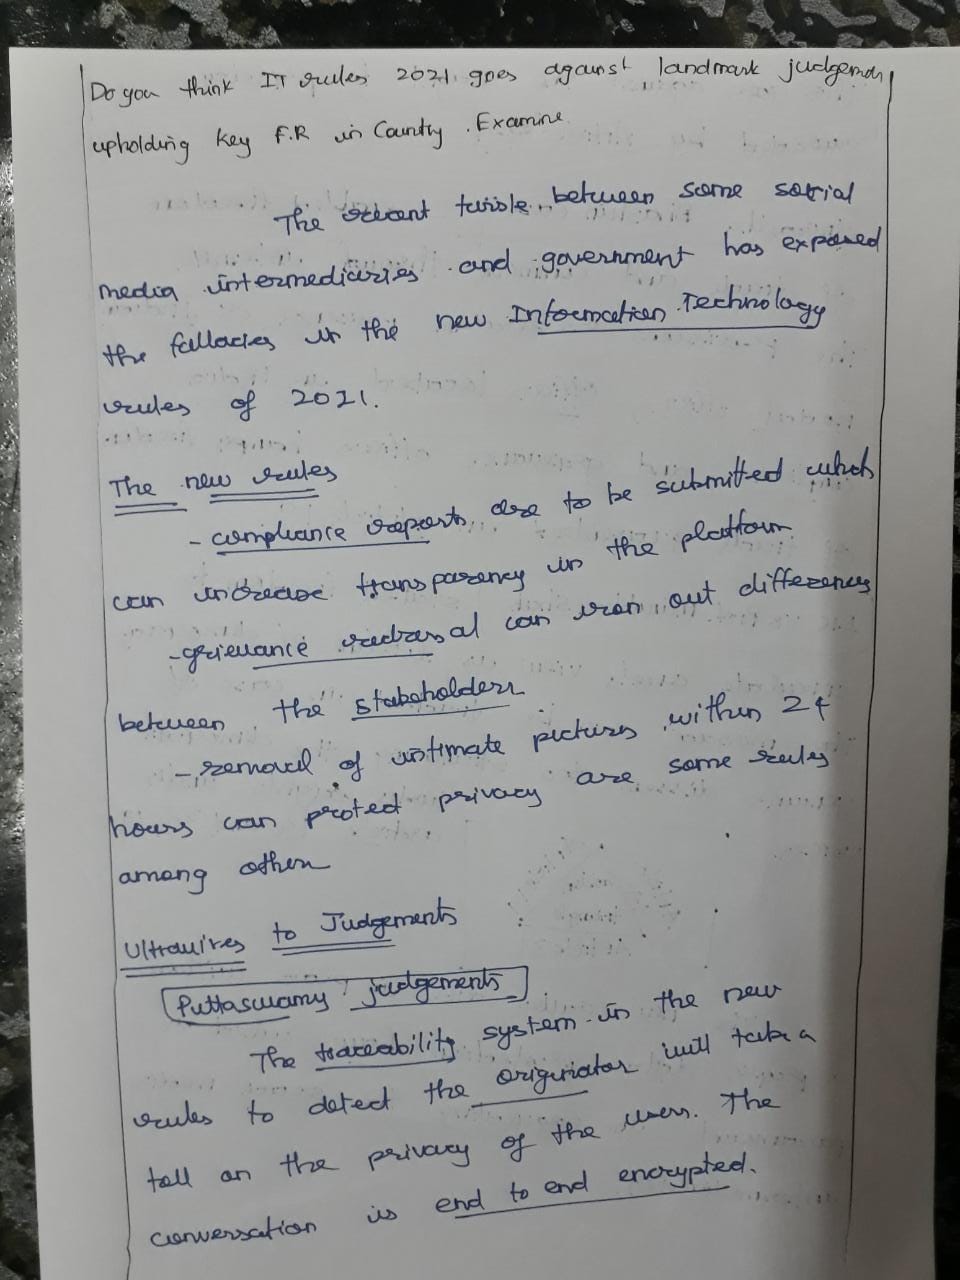 Do you think IT rules 2021 goes against landmark judgemen
upholding key F.R in Country . Examine
The recent tussle between some social
media intermediaries and government has exposed
the fallacies in the new Information Technology
rules of 2021.
The new rules
- compliance reports are to be submitted which
can increase transparency in the platform
- grievance redressal can iron out differences
between the stakeholders
- removal of intimate pictures within 24
hours can protect privacy are some rules
among others
Ultravires to Judgements
Puttaswamy judgements
The traceability system in the new
rules to detect the originator will take a
toll on the privacy of the users. The
conversation is end to end encrypted.